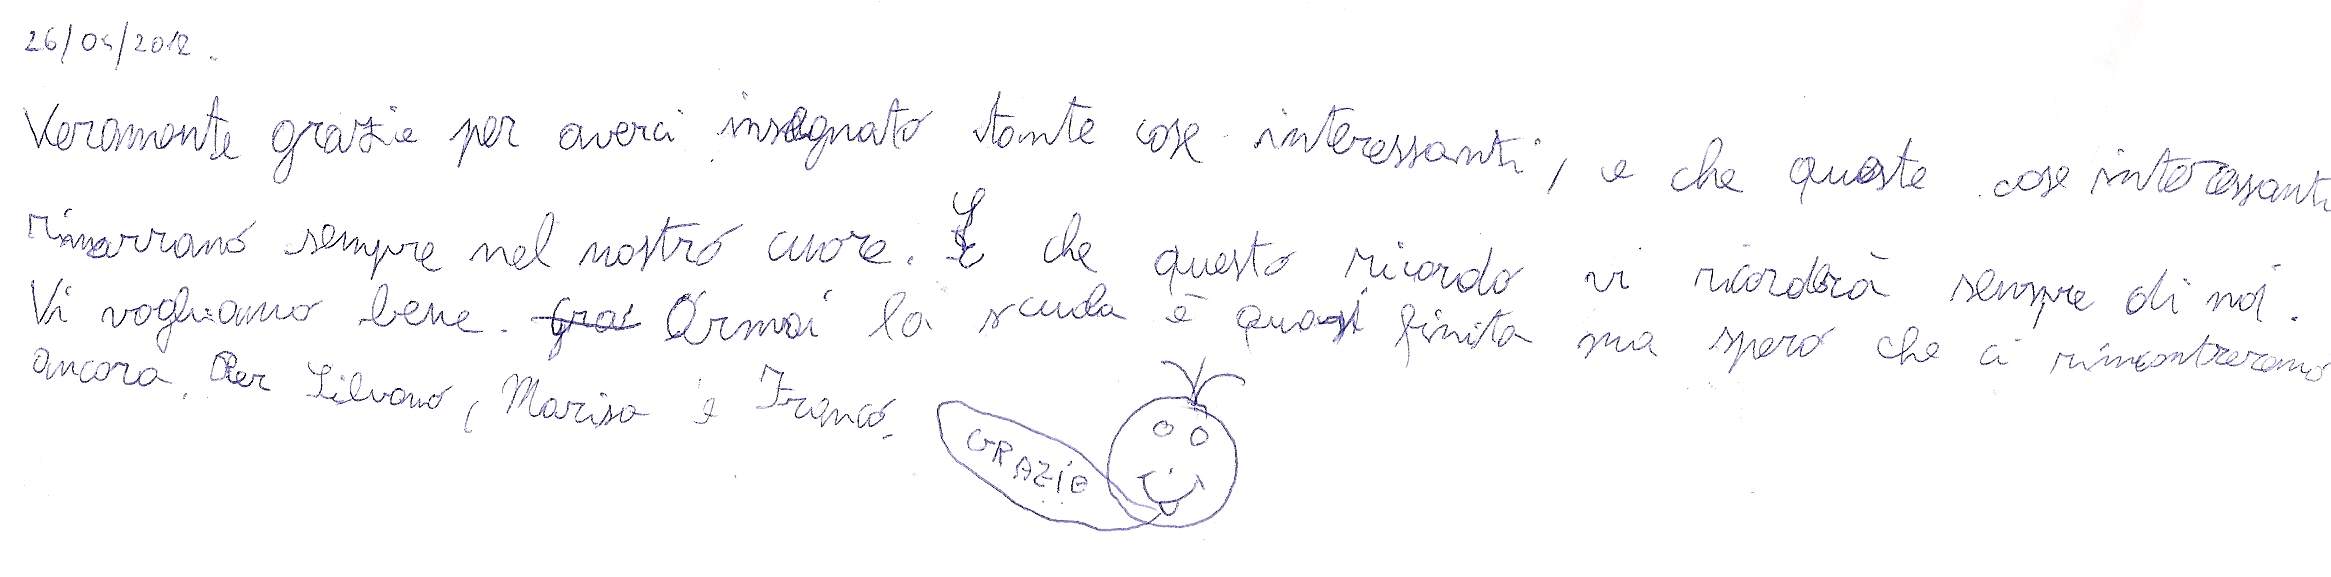 26/04/2012.
Veramente grazie per averci insegnato tante cose interessanti, e che queste cose interessanti
rimarrano sempre nel nostro cuore. E che questo ricordo vi ricorderà sempre di noi.
Vi vogliamo bene. Ormai la scuola è quasi finita ma spero che ci rincontreremo
ancora. Per Silvano, Marisa e Franco.
GRAZIE